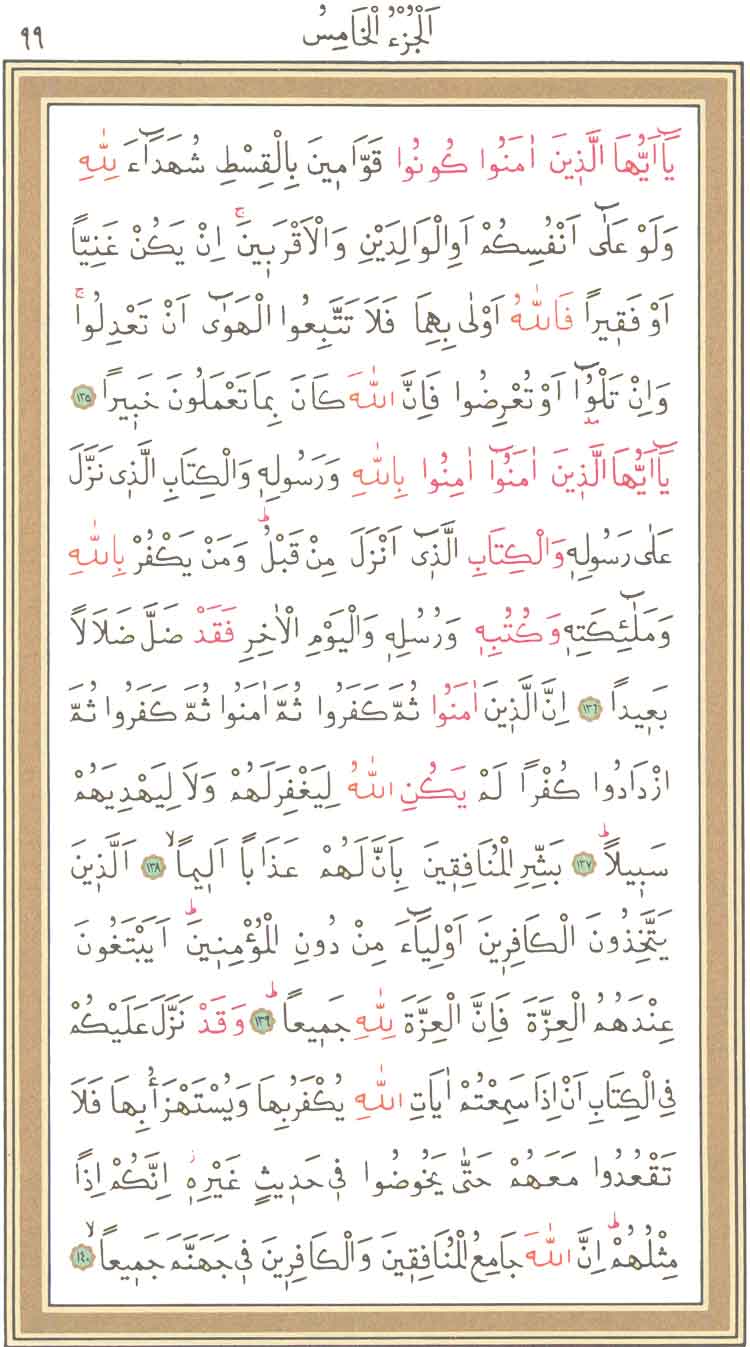 اَلْجُزْءُ الْخَامِسُ
٩٩
يَٓا اَيُّهَا الَّذ۪ينَ اٰمَنُوا كُونُوا قَوَّام۪ينَ بِالْقِسْطِ شُهَدَٓاءَ لِلّٰهِ
وَلَوْ عَلٰٓى اَنْفُسِكُمْ اَوِ الْوَالِدَيْنِ وَالْاَقْرَب۪ينَۚ اِنْ يَكُنْ غَنِيًّا
اَوْ فَق۪يراً فَاللّٰهُ اَوْلٰى بِهِمَا فَلَا تَتَّبِعُوا الْهَوٰٓى اَنْ تَعْدِلُواۚ
وَاِنْ تَلْوُٓ۫ا اَوْ تُعْرِضُوا فَاِنَّ اللّٰهَ كَانَ بِمَا تَعْمَلُونَ خَب۪يراً ﴿١٣٥﴾
يَٓا اَيُّهَا الَّذ۪ينَ اٰمَنُٓوا اٰمِنُوا بِاللّٰهِ وَرَسُولِه۪ وَالْكِتَابِ الَّذ۪ي نَزَّلَ
عَلٰى رَسُولِه۪ وَالْكِتَابِ الَّذ۪ٓي اَنْزَلَ مِنْ قَبْلُۜ وَمَنْ يَكْفُرْ بِاللّٰهِ
وَمَلٰٓئِكَتِه۪ وَكُتُبِه۪ وَرُسُلِه۪ وَالْيَوْمِ الْاٰخِرِ فَقَدْ ضَلَّ ضَلَالاً
بَع۪يداً ﴿١٣٦﴾ اِنَّ الَّذ۪ينَ اٰمَنُوا ثُمَّ كَفَرُوا ثُمَّ اٰمَنُوا ثُمَّ كَفَرُوا ثُمَّ
ازْدَادُوا كُفْراً لَمْ يَكُنِ اللّٰهُ لِيَغْفِرَ لَهُمْ وَلَا لِيَهْدِيَهُمْ
سَب۪يلاًۜ ﴿١٣٧﴾ بَشِّرِ الْمُنَافِق۪ينَ بِاَنَّ لَهُمْ عَذَاباً اَل۪يماًۙ ﴿١٣٨﴾ اَلَّذ۪ينَ
يَتَّخِذُونَ الْكَافِر۪ينَ اَوْلِيَٓاءَ مِنْ دُونِ الْمُؤْمِن۪ينَۜ اَيَبْتَغُونَ
عِنْدَهُمُ الْعِزَّةَ فَاِنَّ الْعِزَّةَ لِلّٰهِ جَم۪يعاًۜ ﴿١٣٩﴾ وَقَدْ نَزَّلَ عَلَيْكُمْ
فِي الْكِتَابِ اَنْ اِذَا سَمِعْتُمْ اٰيَاتِ اللّٰهِ يُكْفَرُ بِهَا وَيُسْتَهْزَأُ بِهَا فَلَا
تَقْعُدُوا مَعَهُمْ حَتّٰى يَخُوضُوا ف۪ي حَد۪يثٍ غَيْرِه۪ۘ اِنَّكُمْ اِذاً
مِثْلُهُمْۜ اِنَّ اللّٰهَ جَامِعُ الْمُنَافِق۪ينَ وَالْكَافِر۪ينَ ف۪ي جَهَنَّمَ جَم۪يعاًۙ ﴿١٤٠﴾